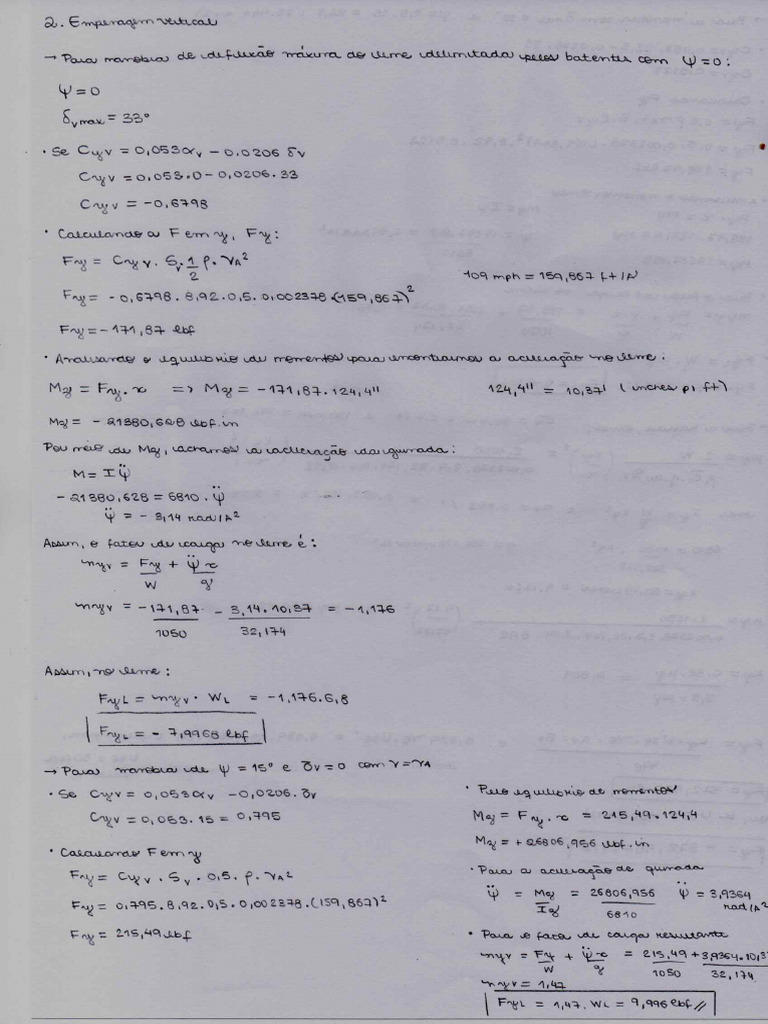 2. Empenagem vertical
→ Para manobra de deflexão máxima do leme delimitada pelos batentes com ψ=0:
ψ=0
δvmax = 33°
• Se Cyv = 0,053αv − 0,0206 δv
Cyv = 0,053.0 − 0,0206.33
Cyv = −0,6798
• Calculando a F em y, Fy:
Fy = Cyv . Sv . 1/2 ρ. VA²
109 mph = 159,867 ft/s
Fy = −0,6798 . 8,92 . 0,5 . 0,002378 . (159,867)²
Fy = −171,87 lbf
• Analisando o equilíbrio de momentos para encontrarmos a aceleração no leme:
Mz = Fy . x => Mz = −171,87 . 124,4"
124,4" = 10,37' (inches p/ ft)
Mz = −21380,628 lbf.in
Por meio de Mz, achamos a aceleração da guinada:
M = Iψ̈
−21380,628 = 6810 . ψ̈
ψ̈ = −3,14 rad/s²
Assim, o fator de carga no leme é:
nyv = Fy/W + ψ̈x/g
nyv = −171,87/1050 − 3,14.10,37/32,174 = −1,176
Assim, no leme:
FyL = nyv . WL = −1,176.6,8
FyL = −7,9968 lbf
→ Para manobra de ψ = 15° e δv=0 com V=VA
• Se Cyv = 0,053αv − 0,0206. δv
Cyv = 0,053. 15 = 0,795
• Calculando F em y
Fy = Cyv . Sv . 0,5 . ρ. VA²
Fy = 0,795.8,92.0,5.0,002378.(159,867)²
Fy = 215,49 lbf
• Pelo equilíbrio de momentos
Mz = Fy . x = 215,49.124,4
Mz = +26806,956 lbf.in
• Para a aceleração de guinada
ψ̈ = Mz/Iz = 26806,956/6810 ψ̈ = 3,9364 rad/s²
• Para o fator de carga resultante
nyv = Fy/W + ψ̈x/g = 215,49/1050 + 3,9364.10,3/32,174
nyv = 1,47
FyL = 1,47. WL = 9,996 lbf //